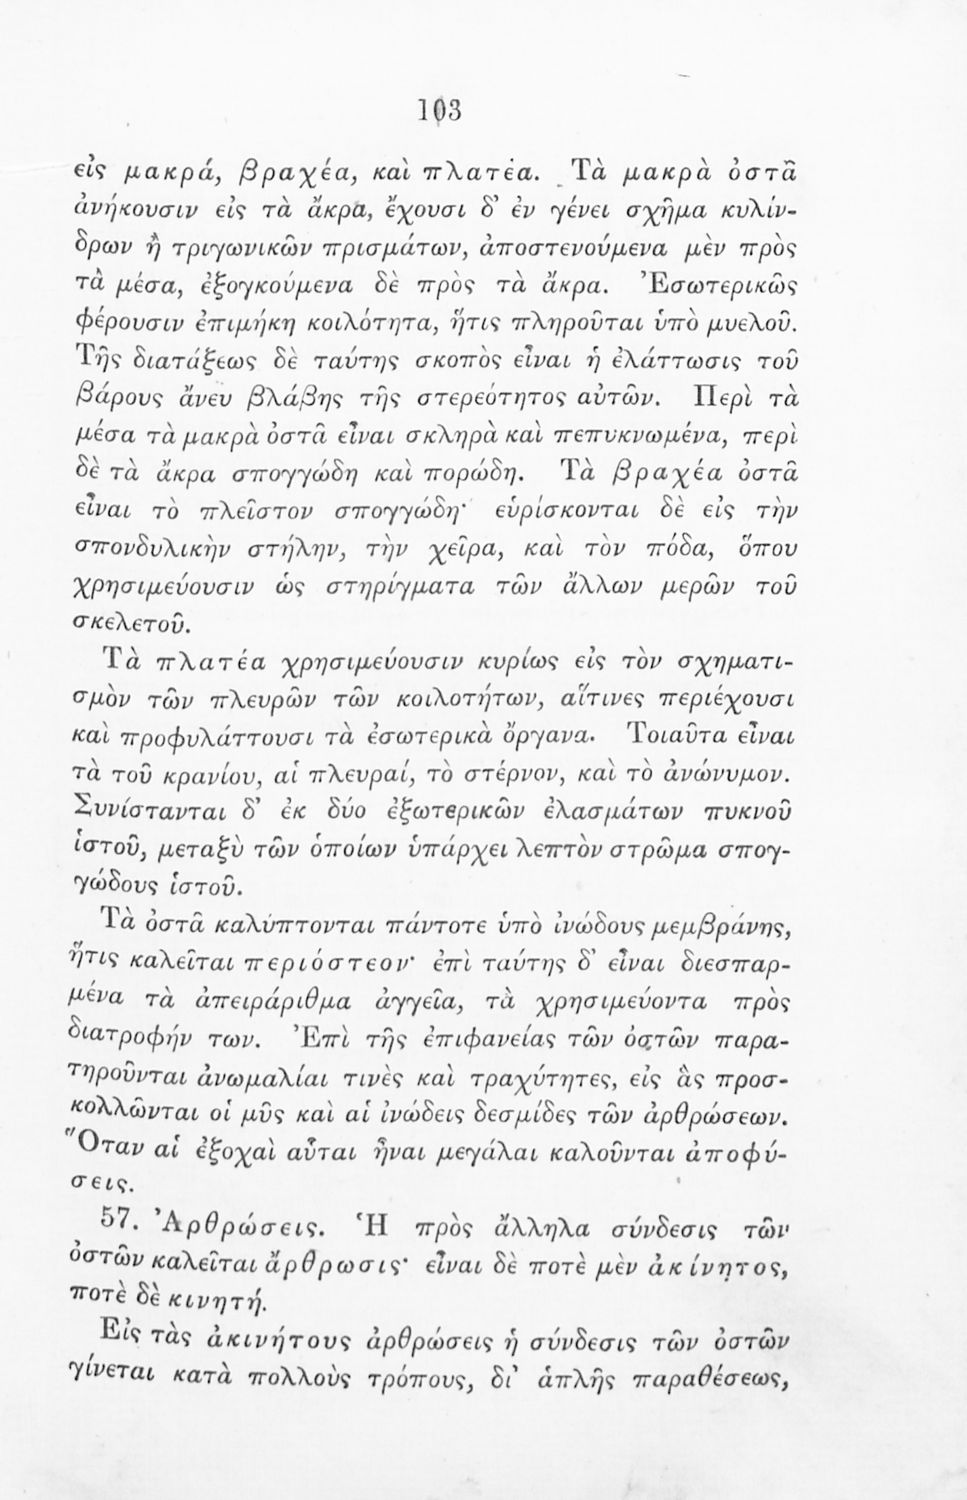 103
εἰς μακρά, βραχέα, καὶ πλατέα. Τὰ μακρὰ ὀστᾶ
ἀνήκουσιν εἰς τὰ ἄκρα, ἔχουσι δ᾿ ἐν γένει σχῆμα κυλίν-
δρων ἢ τριγωνικῶν πρισμάτων, ἀποστενούμενα μὲν πρὸς
τὰ μέσα, ἐξογκούμενα δὲ πρὸς τὰ ἄκρα. Ἐσωτερικῶς
φέρουσιν ἐπιμήκη κοιλότητα, ἥτις πληροῦται ὑπὸ μυελοῦ.
Τῆς διατάξεως δὲ ταύτης σκοπὸς εἶναι ἡ ἐλάττωσις τοῦ
βάρους ἄνευ βλάβης τῆς στερεότητος αὐτῶν. Περὶ τὰ
μέσα τὰ μακρὰ ὀστᾶ εἶναι σκληρὰ καὶ πεπυκνωμένα, περὶ
δὲ τὰ ἄκρα σπογγώδη καὶ πορώδη. Τὰ βραχέα ὀστᾶ
εἶναι τὸ πλεῖστον σπογγώδη· εὑρίσκονται δὲ εἰς τὴν
σπονδυλικὴν στήλην, τὴν χεῖρα, καὶ τὸν πόδα, ὅπου
χρησιμεύουσιν ὡς στηρίγματα τῶν ἄλλων μερῶν τοῦ
σκελετοῦ.
Τὰ πλατέα χρησιμεύουσιν κυρίως εἰς τὸν σχηματι-
σμὸν τῶν πλευρῶν τῶν κοιλοτήτων, αἵτινες περιέχουσι
καὶ προφυλάττουσι τὰ ἐσωτερικὰ ὄργανα. Τοιαῦτα εἶναι
τὰ τοῦ κρανίου, αἱ πλευραί, τὸ στέρνον, καὶ τὸ ἀνώνυμον.
Συνίστανται δ᾿ ἐκ δύο ἐξωτερικῶν ἐλασμάτων πυκνοῦ
ἱστοῦ, μεταξὺ τῶν ὁποίων ὑπάρχει λεπτὸν στρῶμα σπογ-
γώδους ἱστοῦ.
Τὰ ὀστᾶ καλύπτονται πάντοτε ὑπὸ ἰνώδους μεμβράνης,
ἥτις καλεῖται περιόστεον· ἐπὶ ταύτης δ᾿ εἶναι διεσπαρ-
μένα τὰ ἀπειράριθμα ἀγγεῖα, τὰ χρησιμεύοντα πρὸς
διατροφήν των. Ἐπὶ τῆς ἐπιφανείας τῶν ὀστῶν παρα-
τηροῦνται ἀνωμαλίαι τινὲς καὶ τραχύτητες, εἰς ἃς προσ-
κολλῶνται οἱ μῦς καὶ αἱ ἰνώδεις δεσμίδες τῶν ἀρθρώσεων.
Ὅταν αἱ ἐξοχαὶ αὗται ἦναι μεγάλαι καλοῦνται ἀποφύ-
σεις.
57. Ἀρθρώσεις. Ἡ πρὸς ἄλληλα σύνδεσις τῶν
ὀστῶν καλεῖται ἄρθρωσις· εἶναι δὲ ποτὲ μὲν ἀκίνητος,
ποτὲ δὲ κινητή.
Εἰς τὰς ἀκινήτους ἀρθρώσεις ἡ σύνδεσις τῶν ὀστῶν
γίνεται κατὰ πολλοὺς τρόπους, δι᾿ ἁπλῆς παραθέσεως,